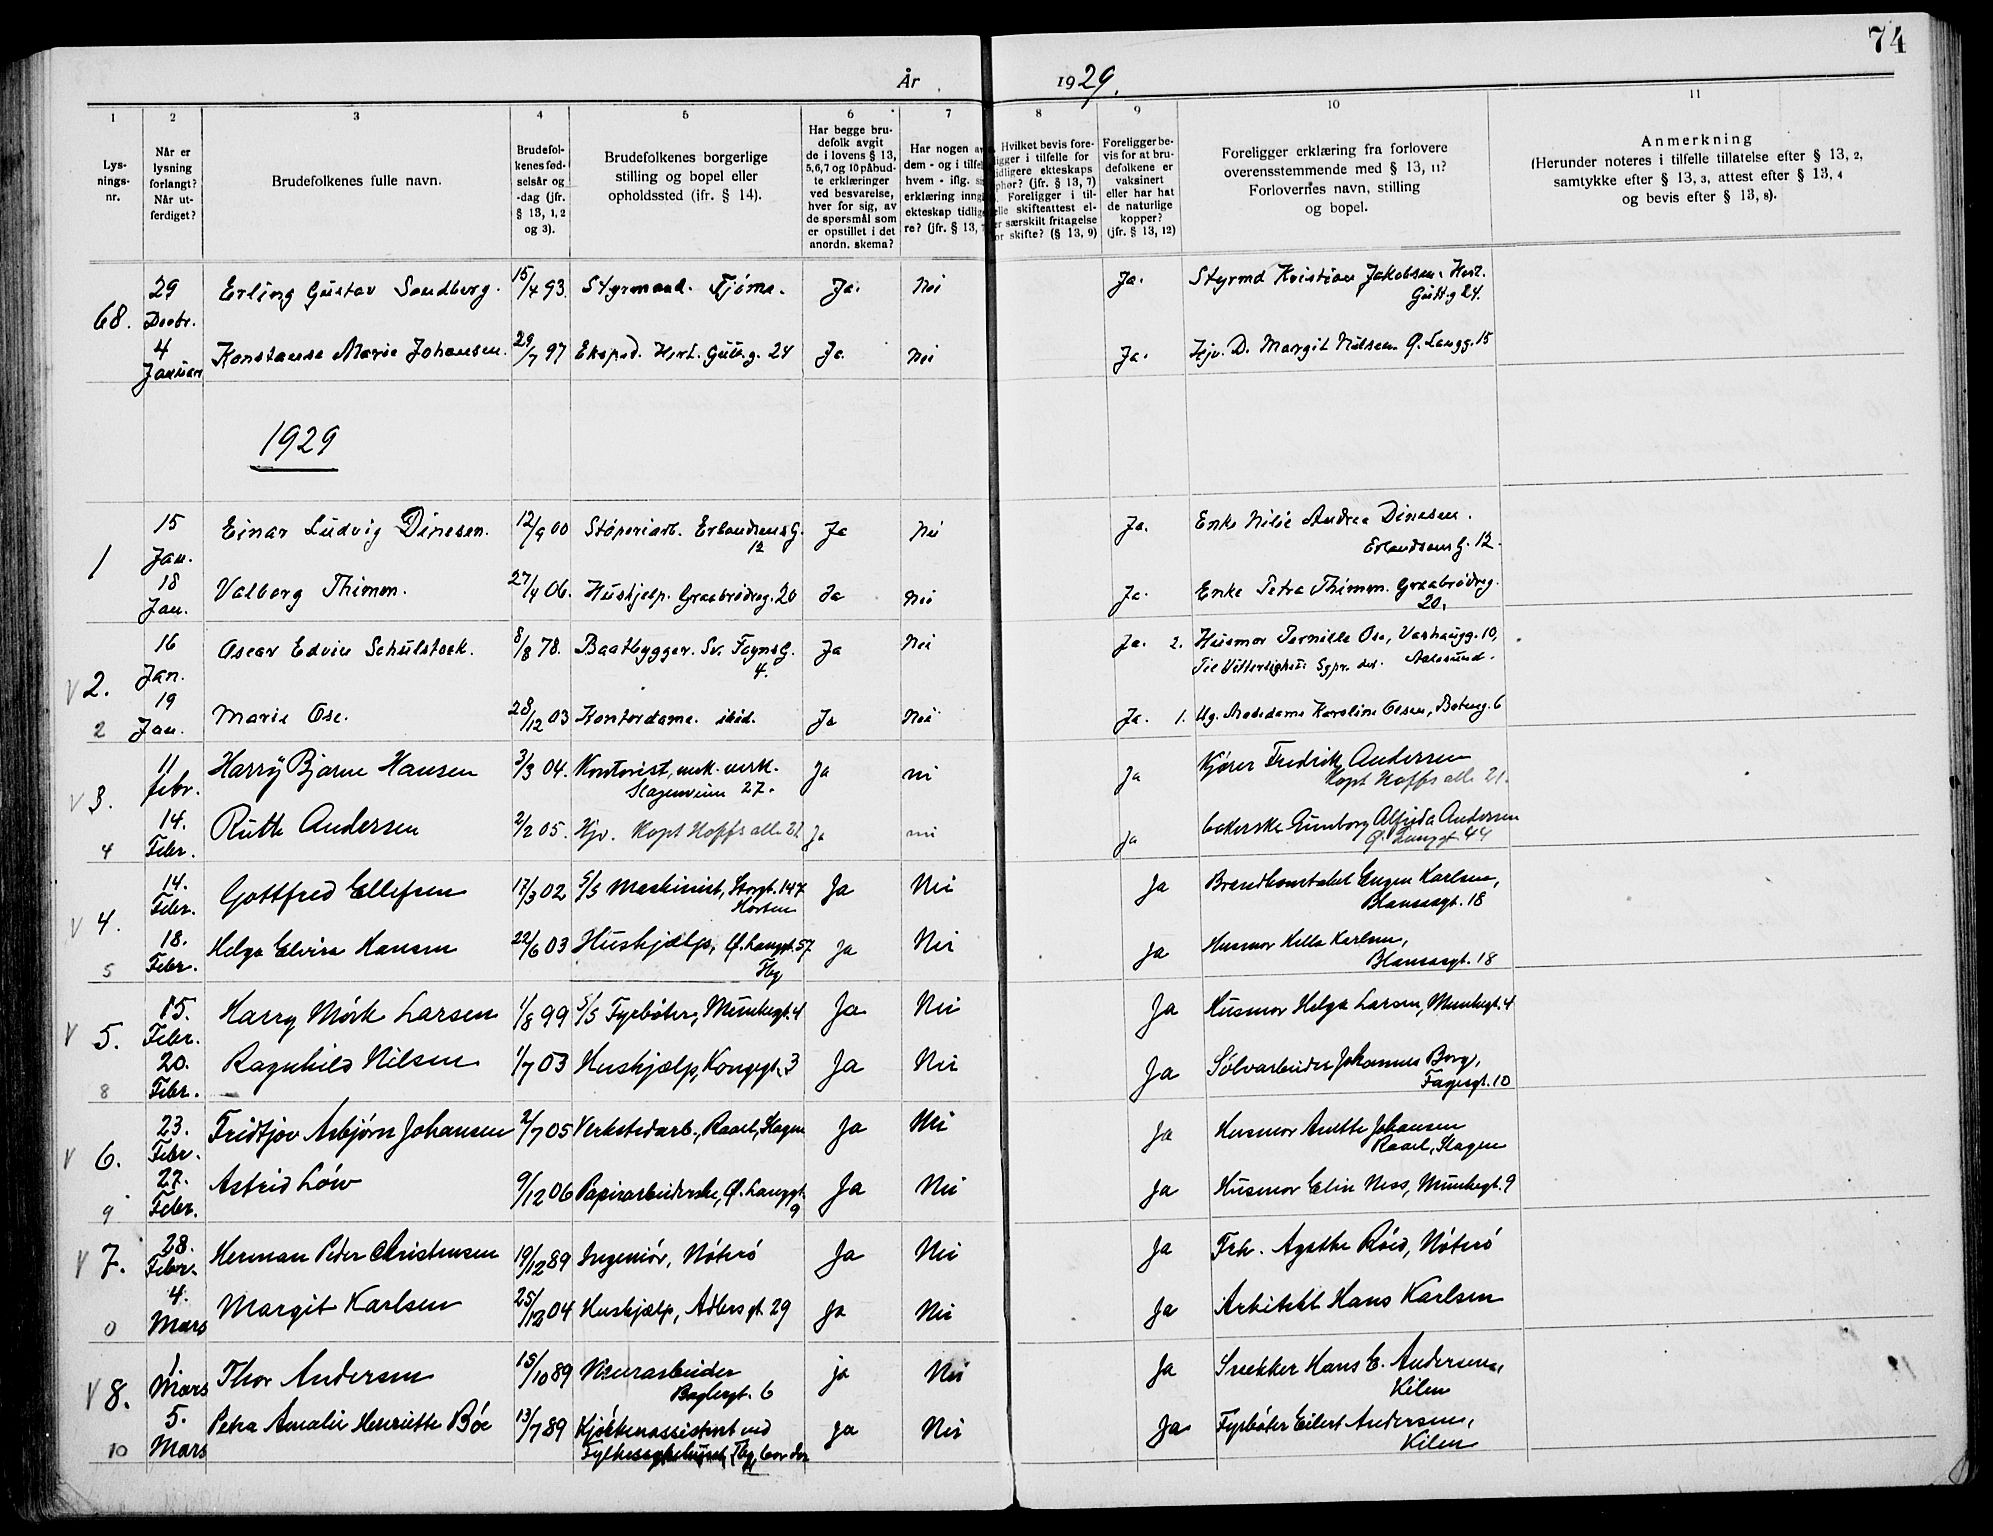 74
År 1929.
1 2 3 4 5 6 7 8 9 10 11
Lys-
nings-
nr.
Når er
lysning
forlangt?
Når ut-
ferdiget?
Brudefolkenes fulle navn.
Brudefol-
kenes fød-
selsår og
-dag (jfr.
§ 13, 1, 2
og 3).
Brudefolkenes borgerlige
stilling og bopel eller
opholdssted (ifr. § 14).
Har begge bru-
defolk avgit
de i lovens § 13,
5,6,7 og 10 påbud-
te erklæringer
ved besvarelse,
hver for sig, av
de spørsmål som
er opstillet i det
anordn. skema?
Har nogen av
dem - og i tilfel
hvem - iflg.
erklæring inngå
ekteskap tidlige
re? (jfr. § 13, 7
Hvilket bevis fore-
ligger i tilfelle for
tidligere ekteskaps
ophør? (jfr. § 13, 7)
Foreligger i til-
felle skifteattest el-
er særskilt fritagelse
for skifte? (§ 13, 9)
Foreligger be-
vis for at bru-
defolkene er
vaksinert
eller har hat
de naturlige
kopper?
(jfr. § 13, 12)
Foreligger erklæring fra forlovere
overensstemmende med § 13, 11?
Forlovernes navn, stilling
og bopel.
Anmerkning
(Herunder noteres i tilfelle tillatelse efter § 13, 2,
samtykke efter § 13, 3, attest efter § 13, 4
og bevis efter § 13, 8).
68. 29 Decbr. Erling Gustav Sandberg. 15/4 93. Styrmand. Tjömö. Ja. Nei Ja. Styrmd Kristian Jakobsen. Hert.
Gutt.g 24.
4 Januar Konstanse Marie Johansen. 29/7 97 Eksped. Hert. Gutt.g. 24 Ja Nei Ja. Hjv. D. Margit Nilsen Ø. Langg. 15
1929
1 15 Jan. Einar Ludvig Dinesen. 12/9 00 Støperiarb. Erlandsens G.
12 Ja Nei Ja. Enke Andrea Dinesen.
Erlandsens G. 12.
18 Jan. Valborg Thimm. 27/4 06. Hushjelp. Graabrödreg. 20 Ja Nei Ja. Enke Petra Thimm. Graabrödreg.
20.
V 2. 16 Jan. Oscar Edvin Schulstock. 8/8 78. Baatbygger. Sv. Foyns G.
4. Ja Nei Ja. 2. Husmor Pernille Ose,
Aalesund.
2 19 Jan. Marie Ose. 28/12 03 Kontordame. ibid. Ja Nei Ja. 1. Ug. Karoline Olsen, 6
V 3. 11 febr. Harry Bjarne Hansen 3/3 04. Kontorist, mek. verk.
Slagenveien 27. Ja nei Ja Kjører Fredrik Andersen
Kapt Hoffs alle 21.
4 14. Febr. Ruth Andersen 2/2 05. Hjv. Kapt Hoffs alle 21 Ja nei Ja Gunborg Alfrida Andersen
Ø. Langgt 44
V 4. 14. Febr. Gottfred Ellefsen 17/3 02 S/S Maskinist, Storgt. 147
Horten Ja Nei Ja Brandkonstabel Eugen Karlsen,
18
5 18. Febr. Helga Elvira Hansen 22/6 03 Hushjælp, Ø. Langgt. 57
Tbg Ja Nei Ja Husmor Karlsen,
18
V 5. 15. Febr. Harry Mörk Larsen 1/8 99 S/S Fyrbøter, Munkegt. 4 Ja Nei Ja Husmor Helga Larsen, Munkegt. 4
8 20. Febr. Ragnhild Nilsen 1/7 03 Hushjælp, Kongegt. 3 Ja Nei Ja Sølvarbeider Johannes Borg,
10
V 6. 23. Febr. Fridtjov Asbjørn Johansen 2/7 05 Verkstedarb., Raael, Slagen Ja Nei Ja Husmor Anette Johansen
Raael, Slagen
9 27. Febr. Astrid Löw 9/12 06 Papirarbeiderske, Ø. Langgt.
9 Ja Nei Ja Husmor Elin Ness, Munkegt. 9
V 7. 28. Febr. Herman Peder Christensen 19/12 89 Ingeniör, Nöterö Ja Nei Ja Frk. Agathe Röed, Nöterö
0 4. Mars Margit Karlsen 25/12 04 Hushjælp, Adlers gt 29 Ja Nei Ja Arkitekt Hans Karlsen
V 8. 1 Mars Thor Andersen 15/10 89 Murarbeider
Baglergt. 6 ja Nei Ja Snekker Hans E. Andersen,
Kilen
10 5. Mars Petra Amalie Henriette Böe 13/7 89 Kjökkenassistent ved
Fylkessykehuset, Tbg, Ja Nei Ja Fyrböter Eilert Andersen,
Kilen